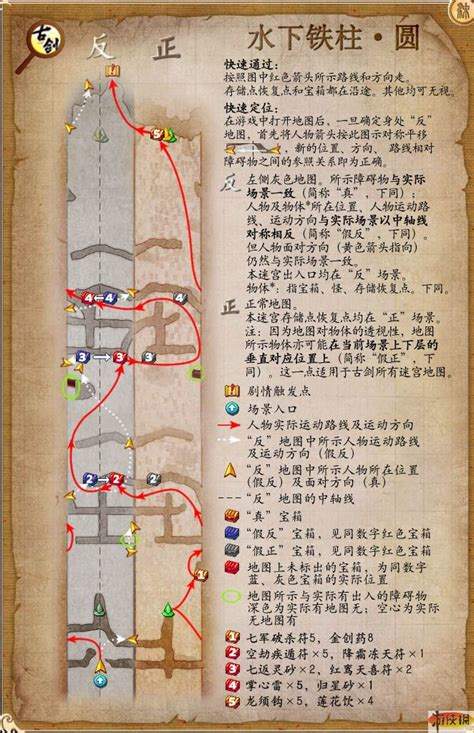 古剑
反 正
水下铁柱·圆
快速通过：
按照图中红色箭头所示路线和方向走。
存储点恢复点和宝箱都在沿途。其他均可无视。
快速定位：
在游戏中打开地图后，一旦确定身处“反”
地图，首先将人物箭头按此图示对称平移
，新的位置、方向、路线相对
障碍物之间的参照关系即为正确。
反 左侧灰色地图。所示障碍物与实际
场景一致（简称“真”，下同）；
人物及物体*所在位置、人物运动路
线、运动方向与实际场景以中轴线
对称相反（简称“假反”，下同）。
但人物面对方向（黄色箭头指向）
仍然与实际场景一致。
本迷宫出入口均在“反”场景。
物体*：指宝箱、怪、存储恢复点。下同。
正 正常地图。
本迷宫存储点恢复点均在“正”场景。
注：因为地图对物体的透视性，地图
所示物体亦可能在当前场景上下层的
垂直对应位置上（简称“假正”，下
同）。这一点适用于古剑所有迷宫地图。
剧情触发点
场景入口
人物实际运动路线及运动方向
“反”地图中所示人物运动路线
及运动方向（假反）
“反”地图中所示人物所在位置
（假反）及面对方向（真）
“反”地图的中轴线
“真”宝箱
“假反”宝箱，见同数字红色宝箱
“假正”宝箱，见同数字红色宝箱
地图上未标出的宝箱，为同数字
蓝、灰色宝箱的实际位置
地图所示与实际有出入的障碍物
深色为实际有地图无；空心为实际
无地图有
1 七军破杀符5，金创药8
2 空劫疾遁符×5，降霜冻天符×1
3 七返灵砂×2，红鸾天喜符×2
4 掌心雷×5，归星砂×1
5 龙须钩×5，莲花饮×4
5
4 4 4
3 3 3
2 2 2
1
游侠网